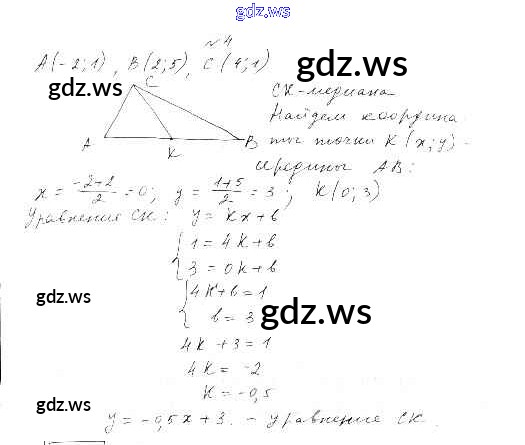 gdz.ws
№4
A(-2;1), B(2;5), C(4;1)
gdz.ws
gdz.ws
C
A
K
B
CK-медиана
Найдем координа
ты точки K(x;y)-
середины AB:
x = \frac{-2+2}{2} = 0; y = \frac{1+5}{2} = 3; K(0;3)
Уравнение CK: y = kx + b
{ 1 = 4k + b
3 = 0k + b
{ 4k + b = 1
b = 3
gdz.ws
gdz.ws
4k + 3 = 1
4k = -2
k = -0,5
gdz.ws
gdz.ws
y = -0,5x + 3. - уравнение CK.